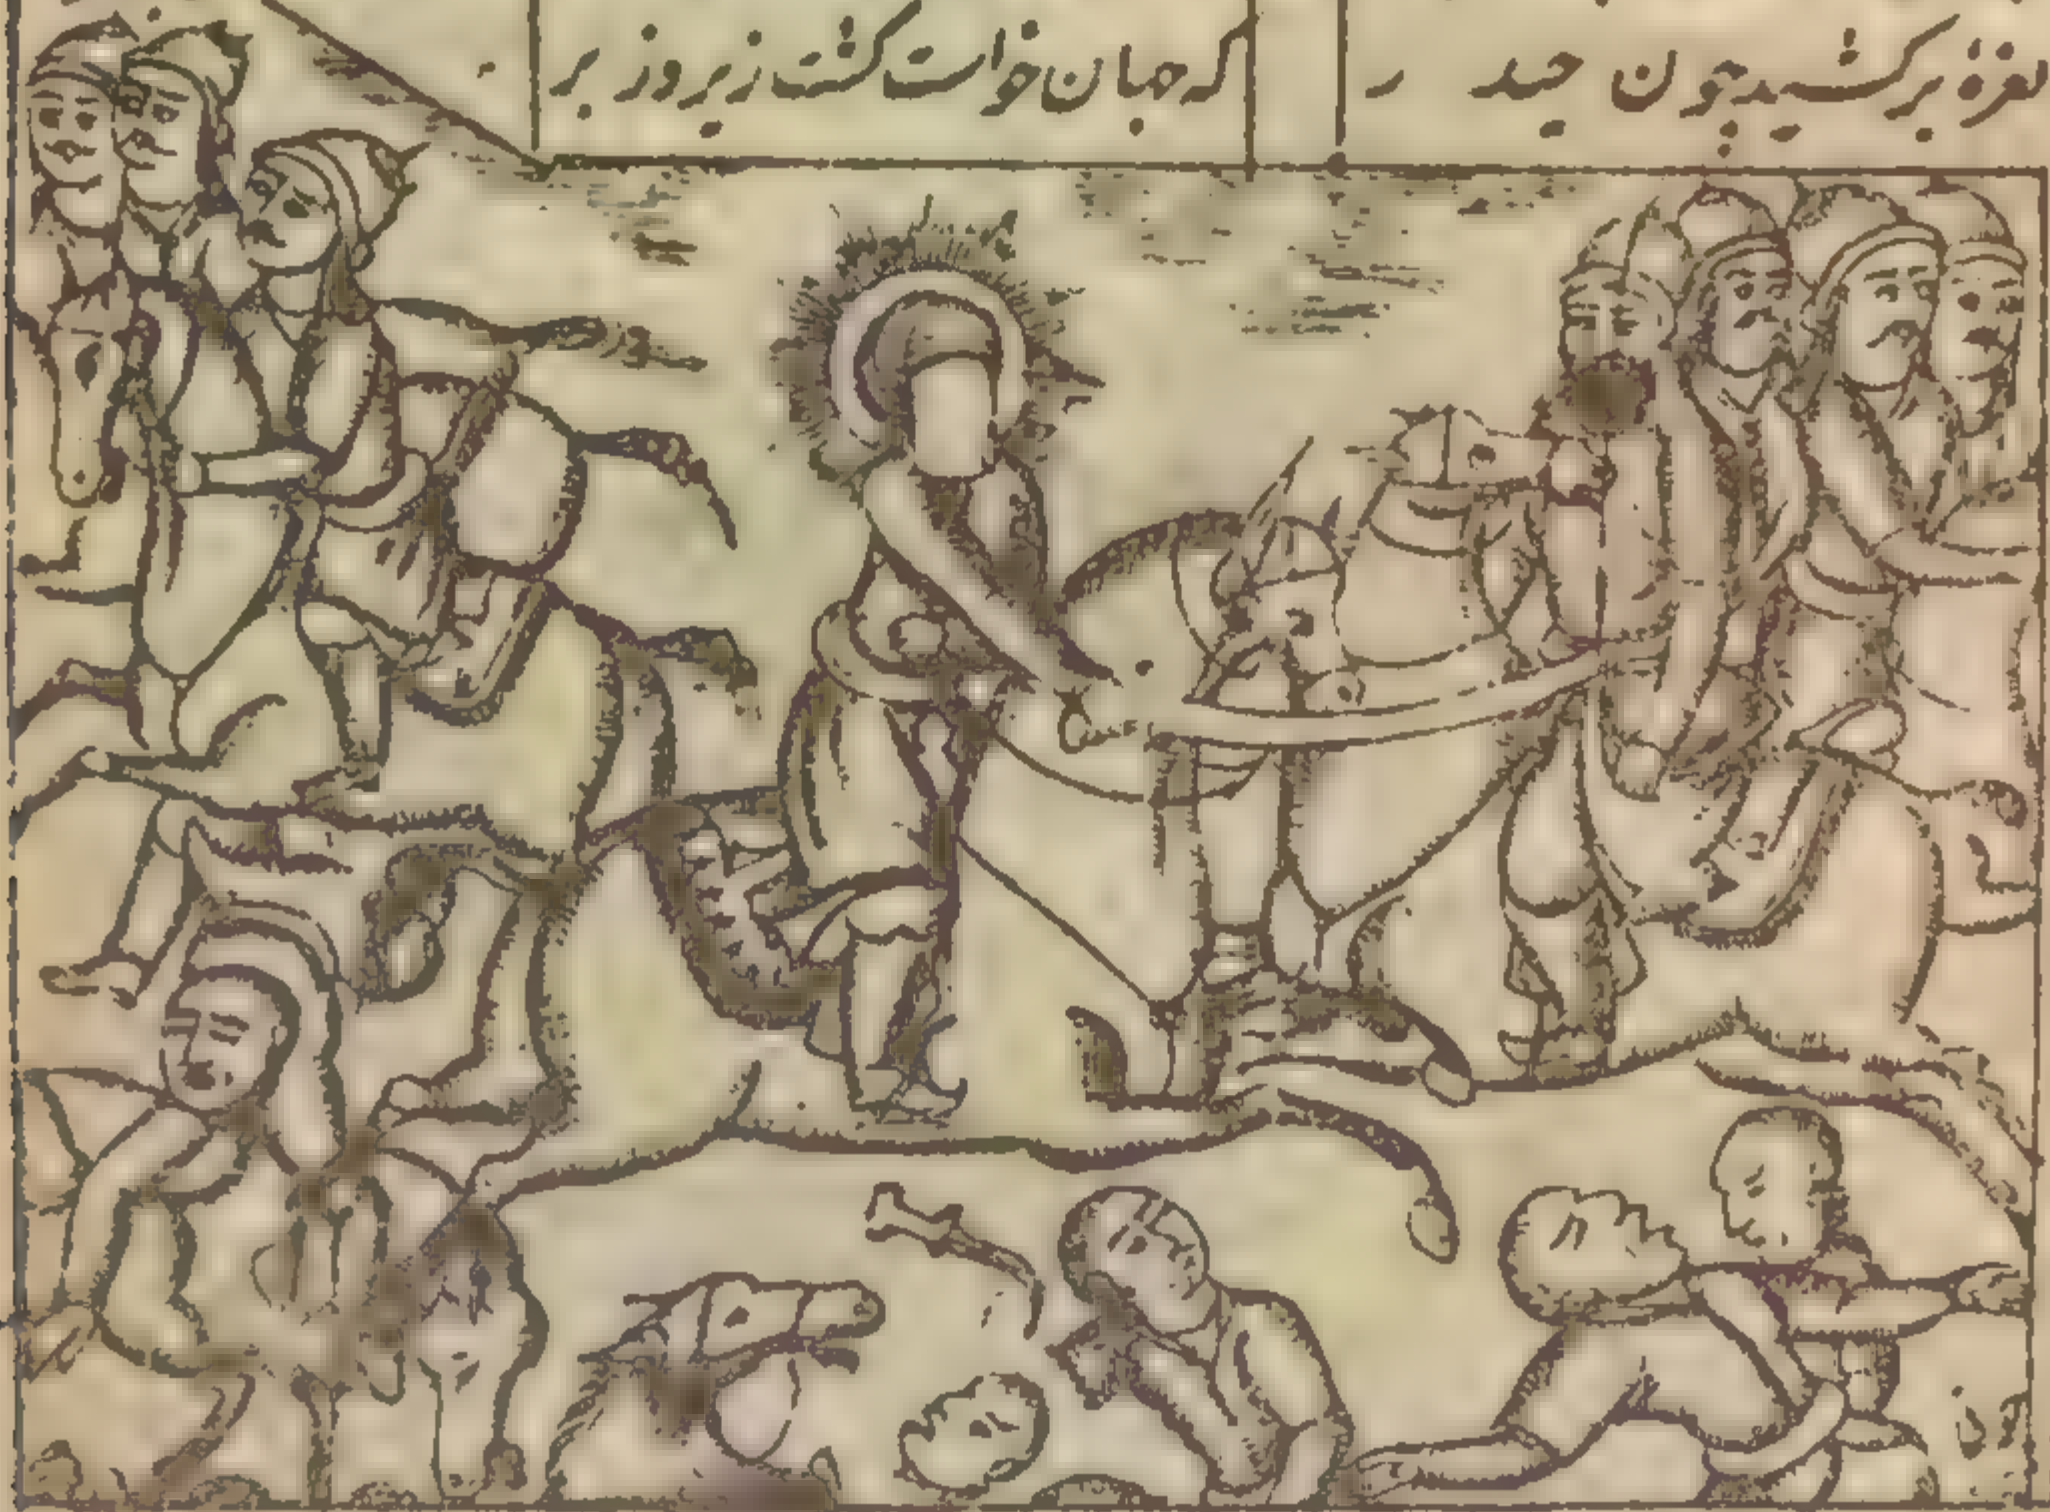 نعرهٔ برکشید چون حیدر که جهان خواست گشت زیر و زبر